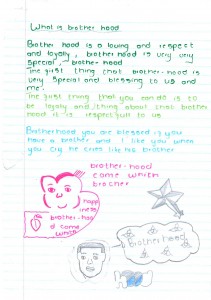 What is brother hood
Brother hood is a loving and respect
and loyaly, brother hood is very very
special, brother-hood
The first thing that brother-hood is
very special and blessing to us and
me.
The first thing that you can do is to
be loyaly and thing about that brother
hood it is respectfull to us
Brotherhood you are blessed if you
have a brother and I like you when
you cry he cries like his brother
brother-hood
came within
brother
happ
iness
brother-hoo
d come
within
Brotherhood